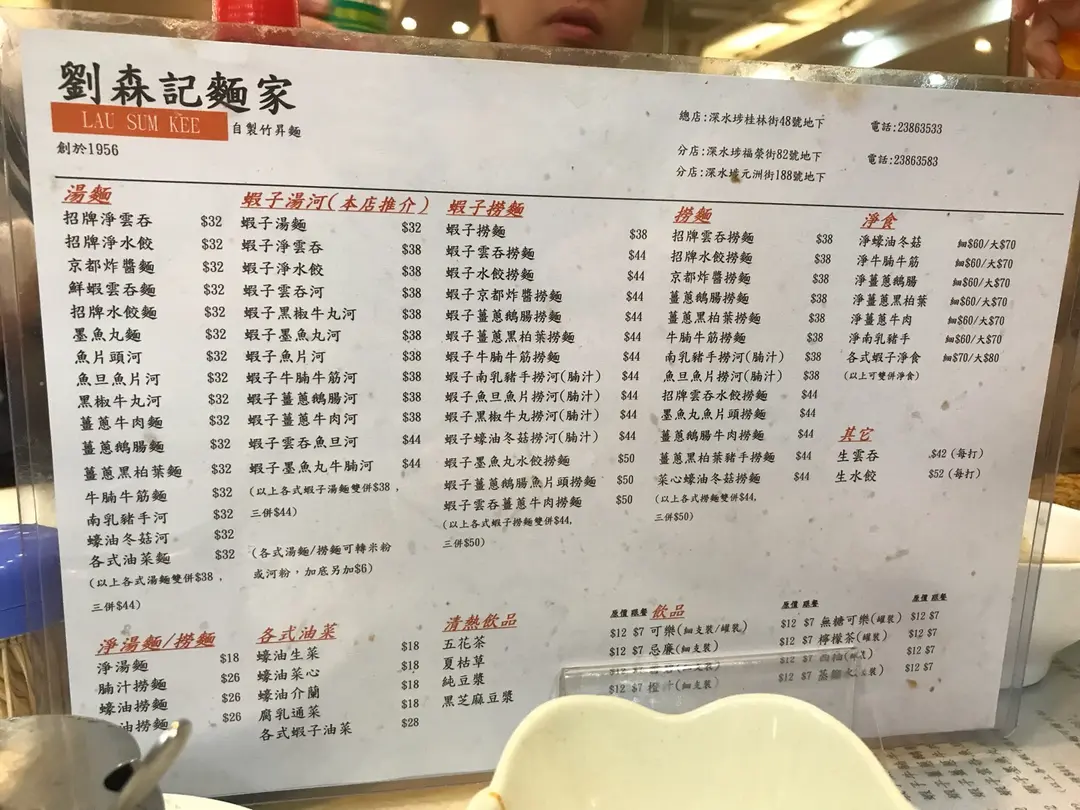 劉森記麵家
LAU SUM KEE 自製竹昇麵
創於1956
總店:深水埗桂林街48號地下 電話:23863533
分店:深水埗福榮街82號地下 電話:23863583
分店:深水埗元洲街188號地下
湯麵
招牌淨雲吞 $32
招牌淨水餃 $32
京都炸醬麵 $32
鮮蝦雲吞麵 $32
招牌水餃麵 $32
墨魚丸麵 $32
魚片頭河 $32
魚旦魚片河 $32
黑椒牛丸河 $32
薑蔥牛肉麵 $32
薑蔥鵝腸麵 $32
薑蔥黑柏葉麵 $32
牛腩牛筋麵 $32
南乳豬手河 $32
蠔油冬菇河 $32
各式油菜麵 $32
(以上各式湯麵雙併$38,
三併$44)
蝦子湯河(本店推介)
蝦子湯麵 $32
蝦子淨雲吞 $38
蝦子淨水餃 $38
蝦子雲吞河 $38
蝦子黑椒牛丸河 $38
蝦子墨魚丸河 $38
蝦子魚片河 $38
蝦子牛腩牛筋河 $38
蝦子薑蔥鵝腸河 $38
蝦子薑蔥牛肉河 $38
蝦子雲吞魚旦河 $44
蝦子墨魚丸牛腩河 $44
(以上各式蝦子湯麵雙併$38,
三併$44)
(各式湯麵/撈麵可轉米粉
或河粉,加底另加$6)
蝦子撈麵
蝦子撈麵 $38
蝦子雲吞撈麵 $44
蝦子水餃撈麵 $44
蝦子京都炸醬撈麵 $44
蝦子薑蔥鵝腸撈麵 $44
蝦子薑蔥黑柏葉撈麵 $44
蝦子牛腩牛筋撈麵 $44
蝦子南乳豬手撈河(腩汁) $44
蝦子魚旦魚片撈河(腩汁) $44
蝦子黑椒牛丸撈河(腩汁) $44
蝦子蠔油冬菇撈河(腩汁) $44
蝦子墨魚丸水餃撈麵 $50
蝦子薑蔥鵝腸魚片頭撈麵 $50
蝦子雲吞薑蔥牛肉撈麵 $50
(以上各式蝦子撈麵雙併$44,
三併$50)
撈麵
招牌雲吞撈麵 $38
招牌水餃撈麵 $38
京都炸醬撈麵 $38
薑蔥鵝腸撈麵 $38
薑蔥黑柏葉撈麵 $38
牛腩牛筋撈麵 $38
南乳豬手撈河(腩汁) $38
魚旦魚片撈河(腩汁) $38
招牌雲吞水餃撈麵 $44
墨魚丸魚片頭撈麵 $44
薑蔥鵝腸牛肉撈麵 $44
薑蔥黑柏葉豬手撈麵 $44
菜心蠔油冬菇撈麵 $44
(以上各式撈麵雙併$44,
三併$50)
淨食
淨蠔油冬菇 細$60/大$70
淨牛腩牛筋 細$60/大$70
淨薑蔥鵝腸 細$60/大$70
淨薑蔥黑柏葉 細$60/大$70
淨薑蔥牛肉 細$60/大$70
淨南乳豬手 細$60/大$70
各式蝦子淨食 細$70/大$80
(以上可雙併淨食)
其它
生雲吞 $42(每打)
生水餃 $52(每打)
淨湯麵/撈麵
淨湯麵 $18
腩汁撈麵 $26
蠔油撈麵 $26
油撈麵 $26
各式油菜
蠔油生菜 $18
蠔油菜心 $18
蠔油介蘭 $18
腐乳通菜 $18
各式蝦子油菜 $28
清熱飲品
五花茶
夏枯草
純豆漿
黑芝麻豆漿
原價 跟餐 飲品 原價 跟餐 原價 跟餐
$12 $7 可樂(細支裝/罐裝) $12 $7 無糖可樂(罐裝) $12 $7
$12 $7 忌廉(細支裝) $12 $7 檸檬茶(罐裝) $12 $7
$12 $7 $12 $7 $12 $7
$12 $7 橙汁(細支裝) $12 $7 $12 $7